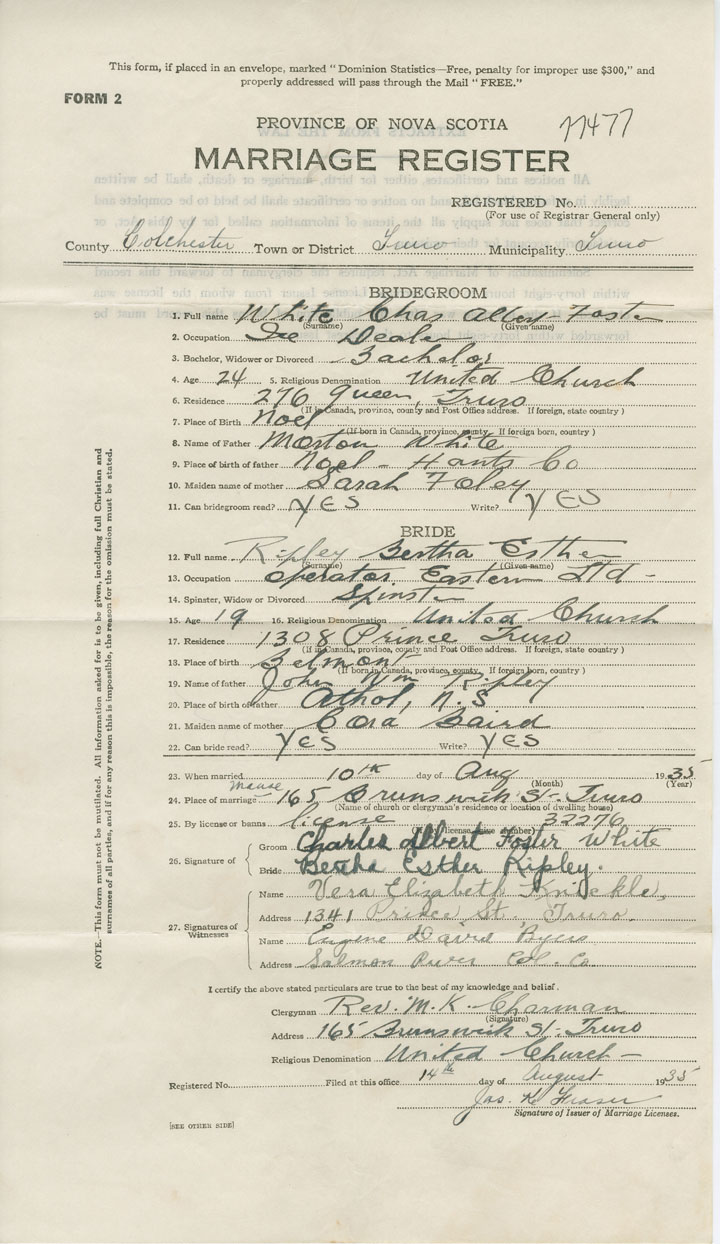 This form, if placed in an envelope, marked "Dominion Statistics—Free, penalty for improper use $300," and
properly addressed will pass through the Mail "FREE."
FORM 2
PROVINCE OF NOVA SCOTIA
77477
MARRIAGE REGISTER
REGISTERED No.
(For use of Registrar General only)
County Colchester Town or District Truro Municipality Truro
BRIDEGROOM
1. Full name White Chas Albert Foster
(Surname) (Given name)
2. Occupation Ice Dealer
3. Bachelor, Widower or Divorced Bachelor
4. Age 24 5. Religious Denomination United Church
6. Residence 276 Queen, Truro
(If in Canada, province, county and Post Office address. If foreign, state country)
7. Place of Birth Noel
(If born in Canada, province, county. If foreign born, country)
8. Name of Father Morton White
9. Place of birth of father Noel - Hants Co
10. Maiden name of mother Sarah Foley
11. Can bridegroom read? YES Write? YES
BRIDE
12. Full name Ripley Bertha Esther
(Surname) (Given name)
13. Occupation Operator, Eastern Ltd-
14. Spinster, Widow or Divorced Spinster
15. Age 19 16. Religious Denomination United Church
17. Residence 1308 Prince Truro
(If in Canada, province, county and Post Office address. If foreign, state country)
18. Place of birth Belmont
(If born in Canada, province, county. If foreign born, country)
19. Name of father John Wm Ripley
20. Place of birth of father Athol, N.S
21. Maiden name of mother Cora Baird
22. Can bride read? YES Write? YES
23. When married 10th day of Aug 1935
(Month) (Year)
Manse
24. Place of marriage 165 Brunswick St- Truro
(Name of church or clergyman's residence or location of dwelling house)
25. By license or banns license 32276
(If by license give number)
26. Signature of
Groom Charles Albert Foster White
Bride Bertha Esther Ripley.
27. Signatures of Witnesses
Name Vera Elizabeth
Address 1341 Prince St., Truro.
Name Eugene David Byers
Address Salmon River Col. Co.
I certify the above stated particulars are true to the best of my knowledge and belief.
Clergyman Rev. M. K. Charman
(Signature)
Address 165 Brunswick St- Truro
Religious Denomination United Church -
Registered No. Filed at this office 14th day of August 1935
Jas. K. Fraser
Signature of Issuer of Marriage Licenses.
[SEE OTHER SIDE]
NOTE.—This form must not be mutilated. All information asked for is to be given, including full Christian and
surnames of all parties, and if for any reason this is impossible, the reason for the omission must be stated.